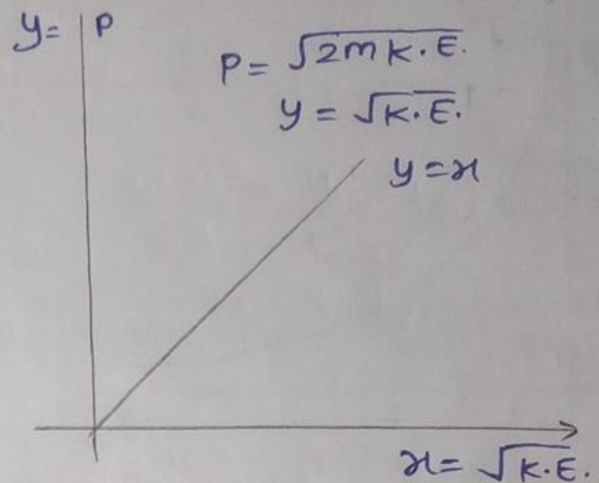 y= P
P = √2mK.E.
y = √K.E.
y = x
x = √K.E.